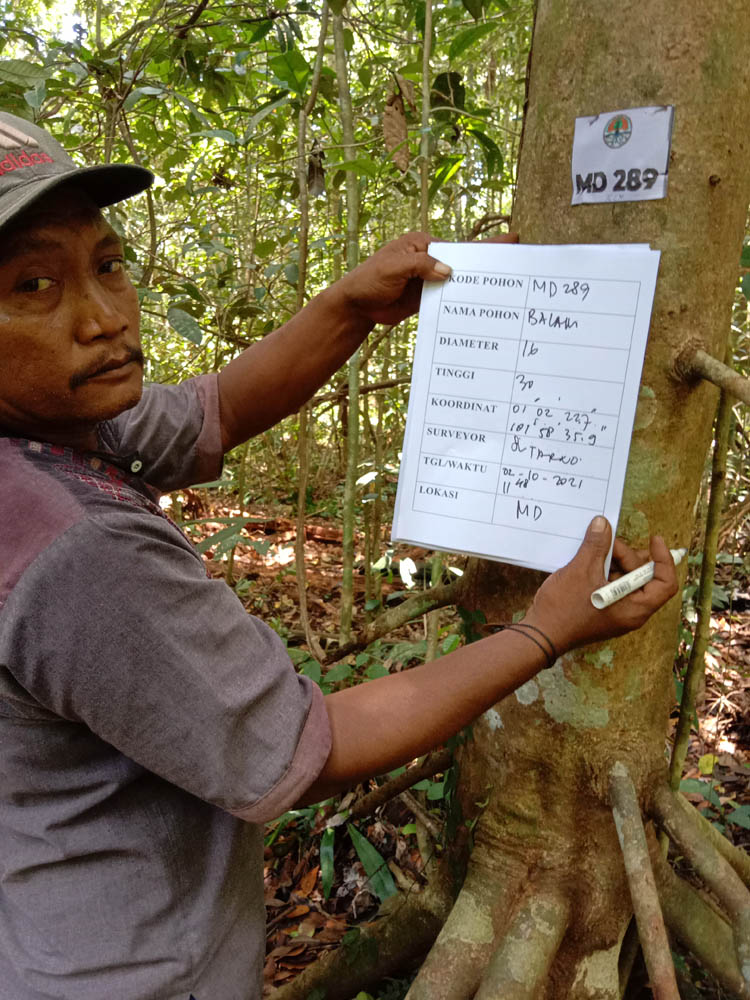 adidas
MD 289
KODE POHON MD 289
NAMA POHON BALAM
DIAMETER 16
TINGGI 30
KOORDINAT 01° 02' 227"
101° 58' 35.9"
SURVEYOR SUTARNO
TGL/WAKTU 02-10-2021
11 48
LOKASI MD